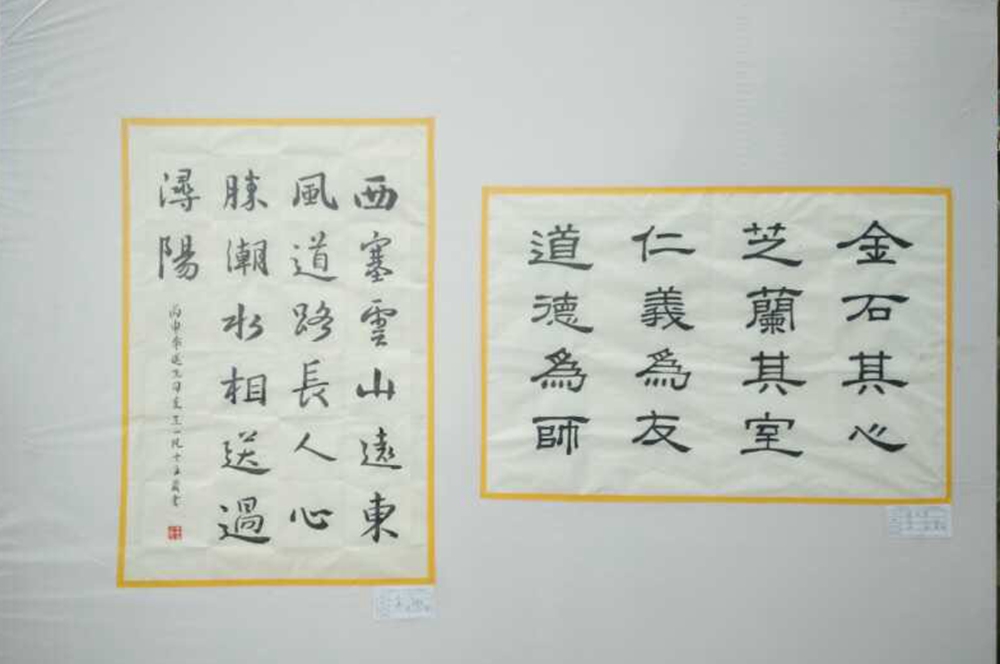 金石其心
芝蘭其室
仁義爲友
道德爲師
西塞雲山遠東
風道路長人心
勝潮水相送過
潯陽
丙申